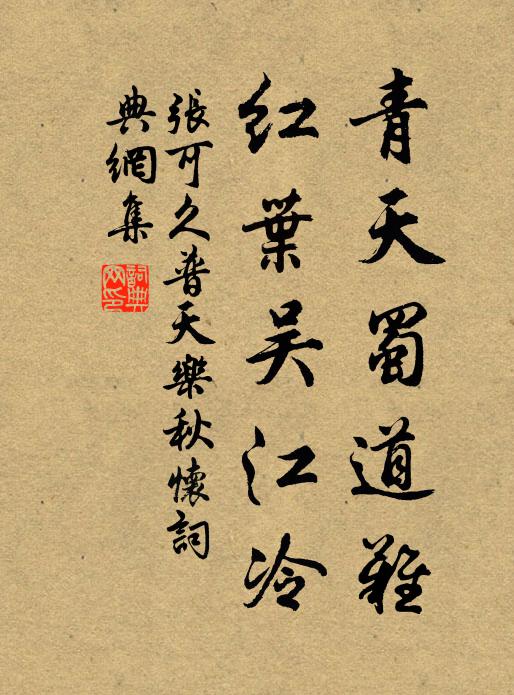 青天蜀道難
紅葉吴江冷
張可久普天樂秋懷詞
典網集
詞典網印